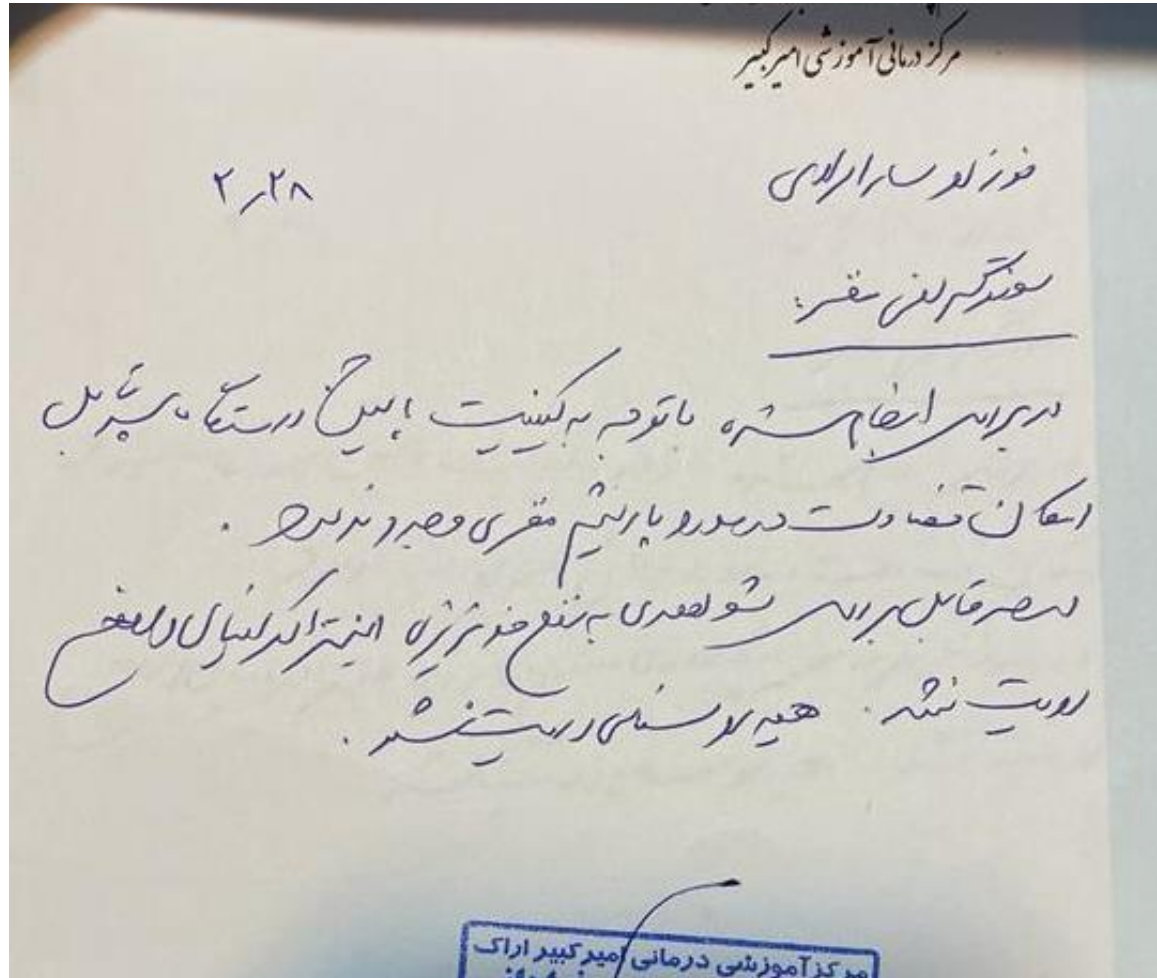 مرکز درمانی آموزشی امیرکبیر
نوزاد سارا مرادی
۲/۲۸
سونوگرافی مغز:
در بررسی انجام شده با توجه به کیفیت پایین دستگاه پرتابل
امکان قضاوت در مورد پارانشیم مغزی وجود ندارد.
در حد قابل بررسی شواهدی به نفع خونریزی اینتراکرانیال واضح
رویت نشد. هیدروسفالی رویت نشد.
مرکز آموزشی درمانی امیرکبیر اراک